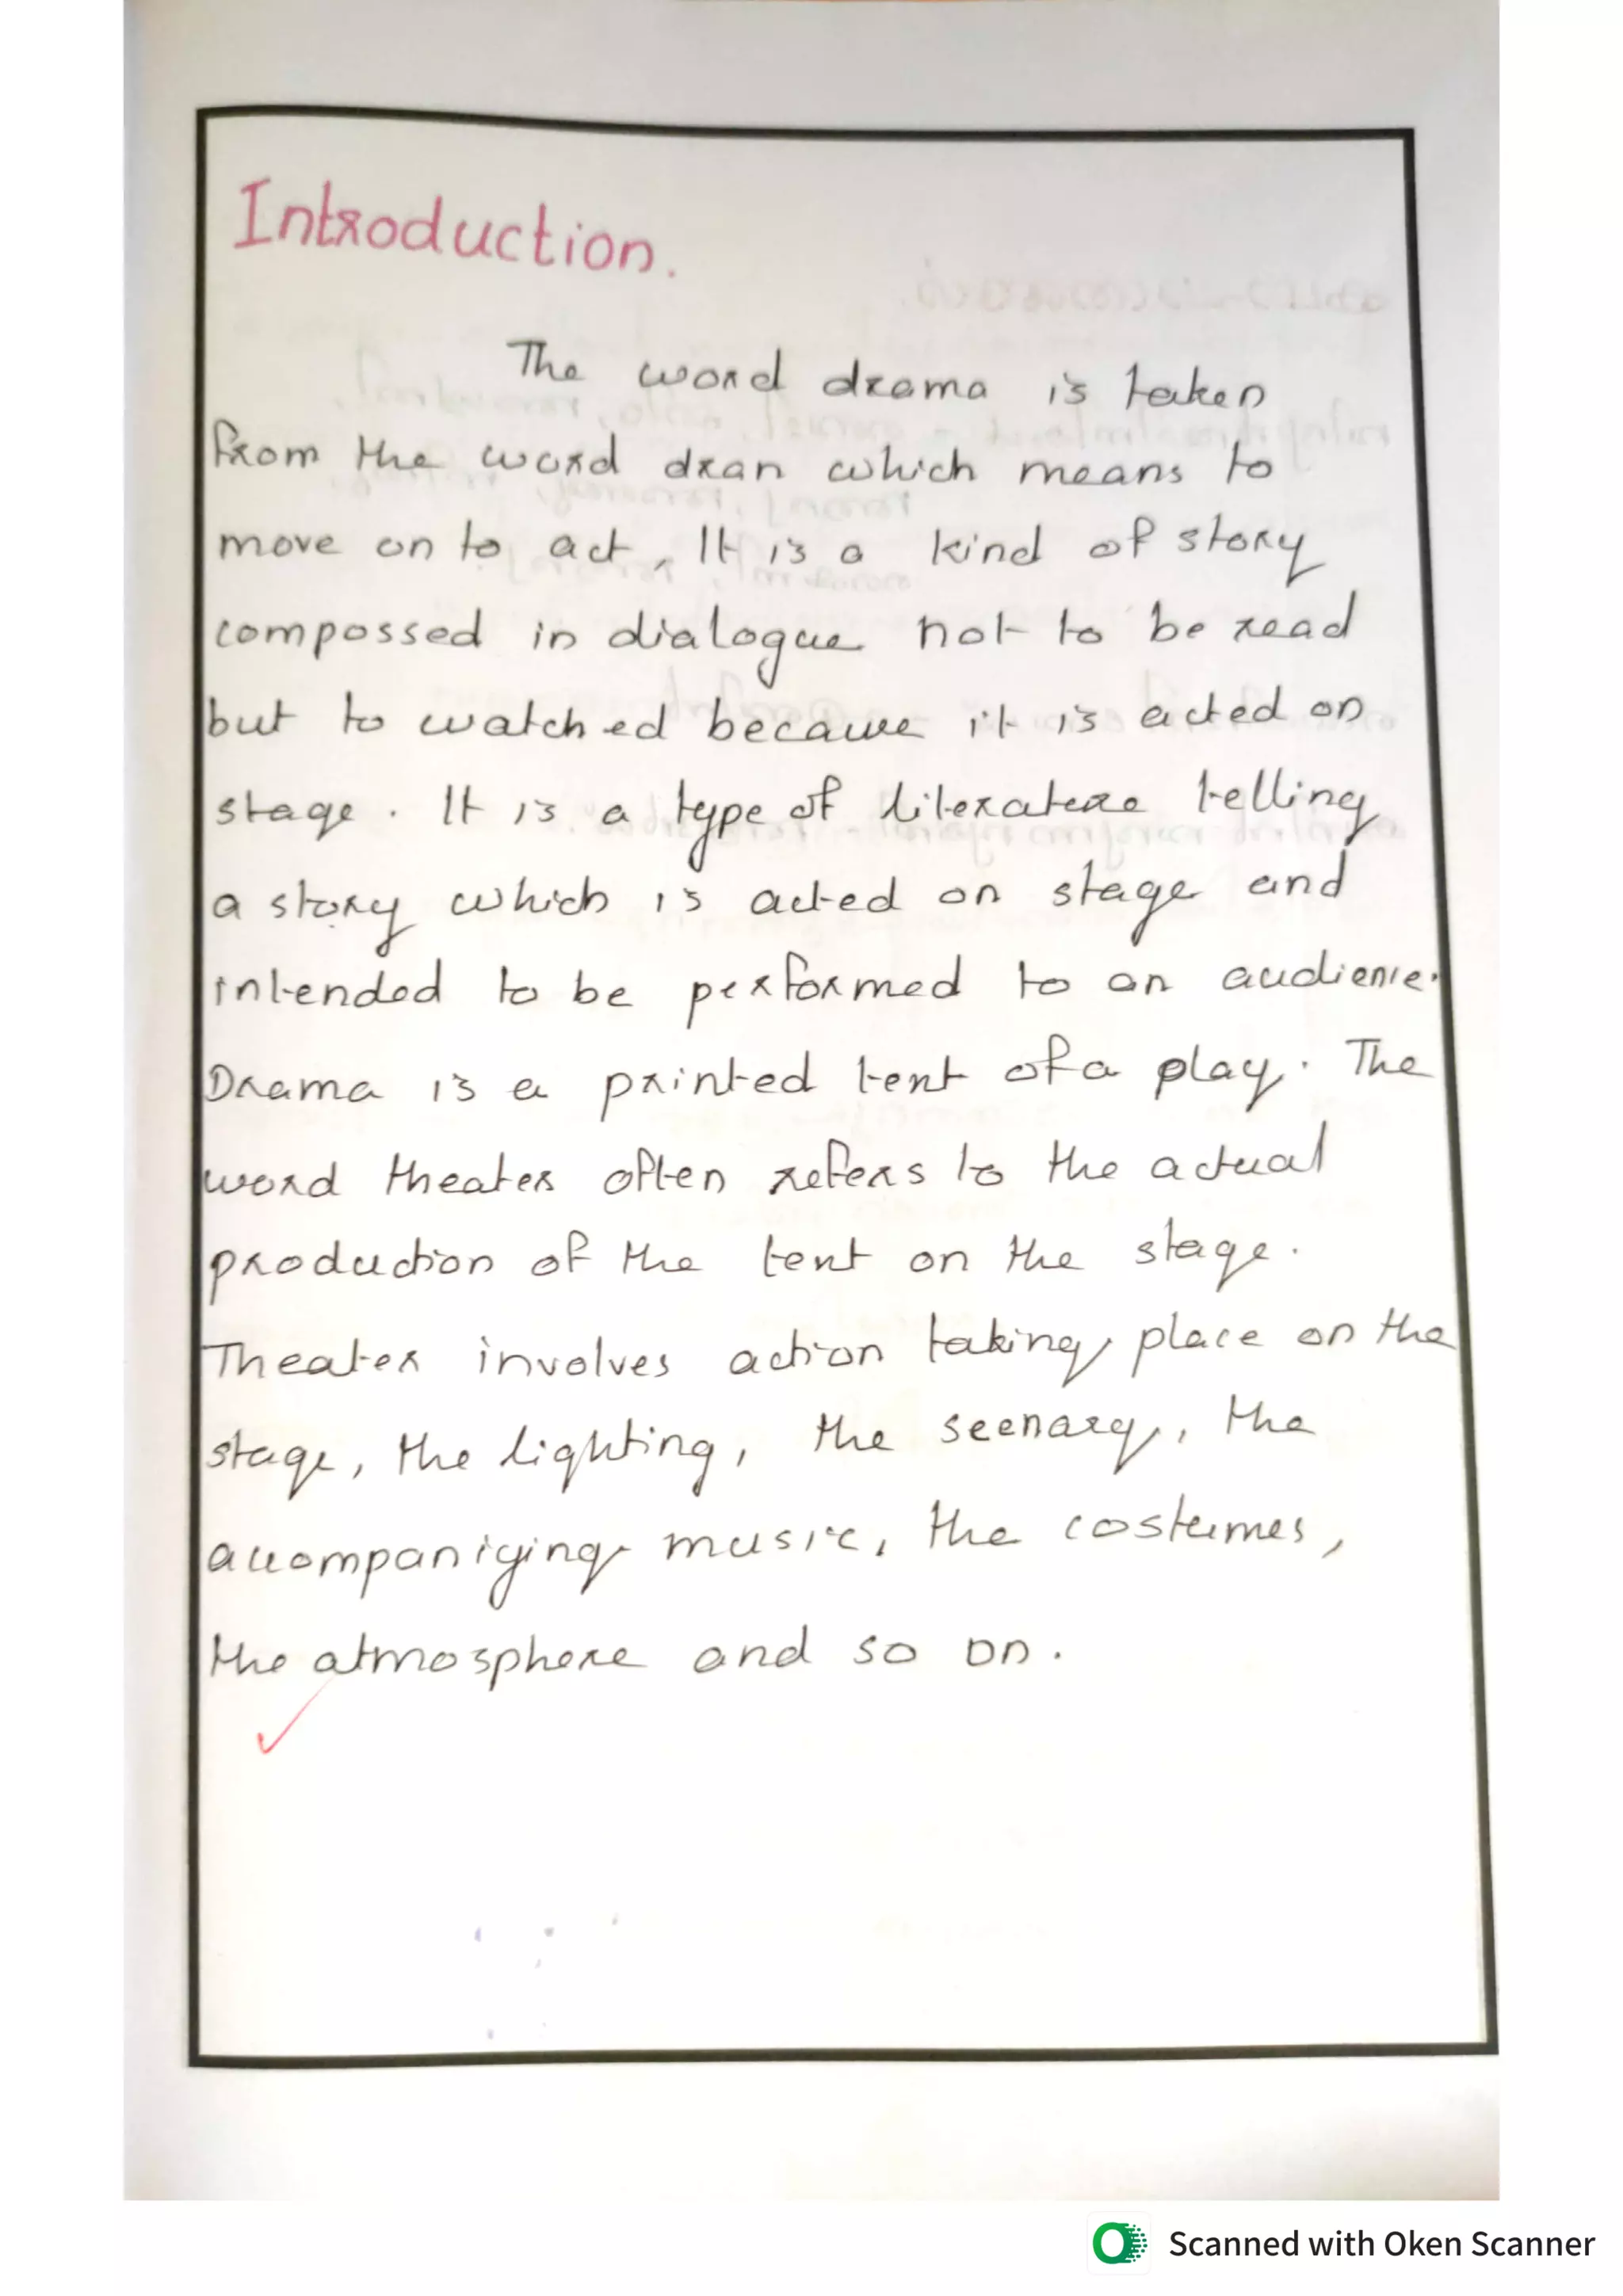 Introduction.
The word drama is taken
from the word dran which means to
move on to act, It is a kind of story
compossed in dialogue not to be read
but to watched because it is acted on
stage. It is a type of literature telling
a story which is acted on stage and
intended to be performed to an audience.
Drama is a printed tent of a play. The
word theater often refers to the actual
production of the tent on the stage.
Theater involves action taking place on the
stage, the lighting, the seenary, the
accompaniying music, the costumes,
the atmosphere and so on.
Scanned with Oken Scanner